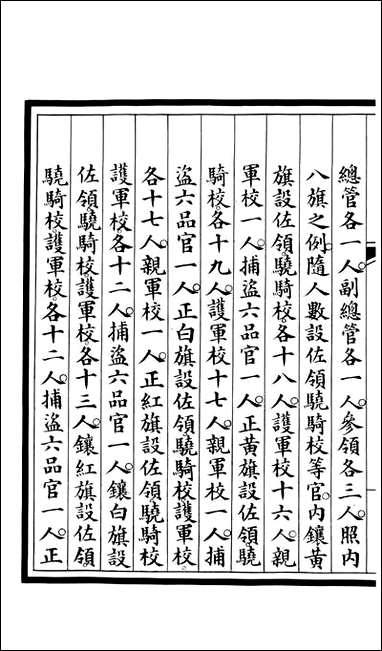 總管各一人副總管各一人參領各三人照內
八旗之例隨人數設佐領驍騎校等官內鑲黃
旗設佐領驍騎校各十八人護軍校十六人親
軍校一人捕盜六品官一人正黃旗設佐領驍
騎校各十九人護軍校十七人親軍校一人捕
盜六品官一人正白旗設佐領驍騎校護軍校
各十七人親軍校一人正紅旗設佐領驍騎校
護軍校各十二人捕盜六品官一人鑲白旗設
佐領驍騎校護軍校各十三人鑲紅旗設佐領
驍騎校護軍校各十二人捕盜六品官一人正